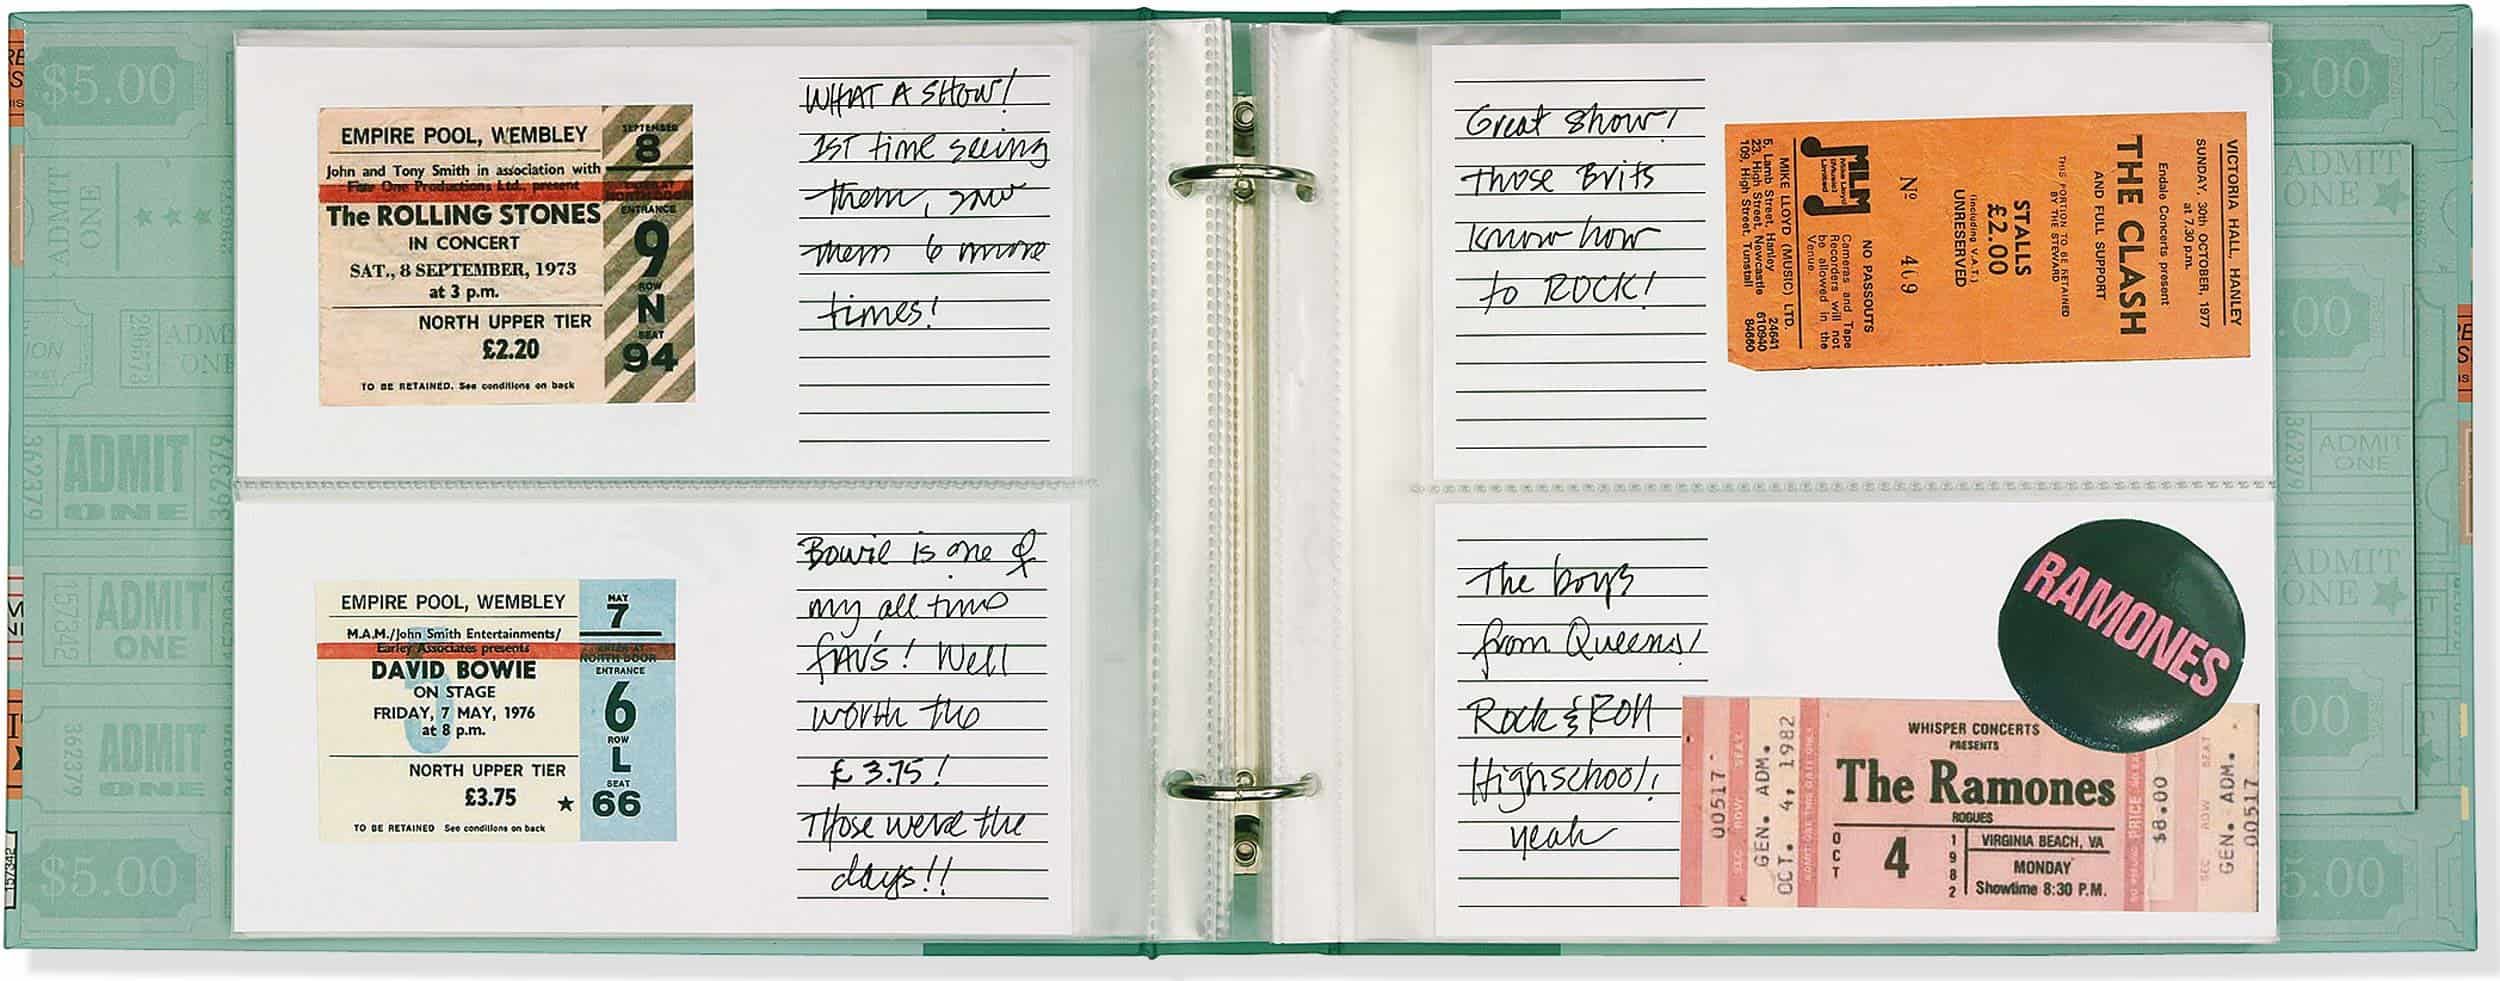 EMPIRE POOL, WEMBLEY
John and Tony Smith in association with
Five One Productions Ltd., present
The ROLLING STONES
IN CONCERT
SAT., 8 SEPTEMBER, 1973
at 3 p.m.
NORTH UPPER TIER
£2.20
TO BE RETAINED. See conditions on back
SEPTEMBER
8
NORTH DOOR
ENTRANCE
9
ROW
N
SEAT
94
WHAT A SHOW!
1ST time seeing
them, saw
them 6 more
times!
EMPIRE POOL, WEMBLEY
M.A.M./John Smith Entertainments/
Earley Associates presents
DAVID BOWIE
ON STAGE
FRIDAY, 7 MAY, 1976
at 8 p.m.
NORTH UPPER TIER
£3.75
TO BE RETAINED See conditions on back
MAY
7
ENTER AT
NORTH DOOR
ENTRANCE
6
ROW
L
SEAT
66
Bowie is one of
my all time
FAV'S! Well
worth the
£3.75!
Those were the
days!!
Great show!
Those Brits
know how
to ROCK!
VICTORIA HALL, HANLEY
SUNDAY, 30th OCTOBER, 1977
at 7.30 p.m.
Endale Concerts present
THE CLASH
AND FULL SUPPORT
THIS PORTION TO BE RETAINED
BY THE STEWARD
STALLS
£2.00
(including V.A.T.)
UNRESERVED
Nº 409
NO PASSOUTS
Cameras and Tape
Recorders will not
be allowed in the
Venue.
MLM
Mike Lloyd
(Music)
Limited
MIKE LLOYD (MUSIC) LTD.
5, Lamb Street, Hanley 24641
23, High Street, Newcastle 610940
109, High Street, Tunstall 84660
The boys
from Queens!
Rock & Roll
Highschool!
yeah
RAMONES
00517
GEN. ADM.
OCT. 4, 1982
WHISPER CONCERTS
PRESENTS
The Ramones
ROGUES
OCT
4
1982
VIRGINIA BEACH, VA
MONDAY
Showtime 8:30 P.M.
$8.00
GEN. ADM.
00517
$5.00
ADMIT
ONE
ADMIT
ONE
29573
362379
ADMIT
ONE
362379
157342
ADMIT
ONE
362379
ADMIT
ONE
$5.00
157342
ADMIT
ONE
362379
ADMIT
ONE
ADMIT
ONE